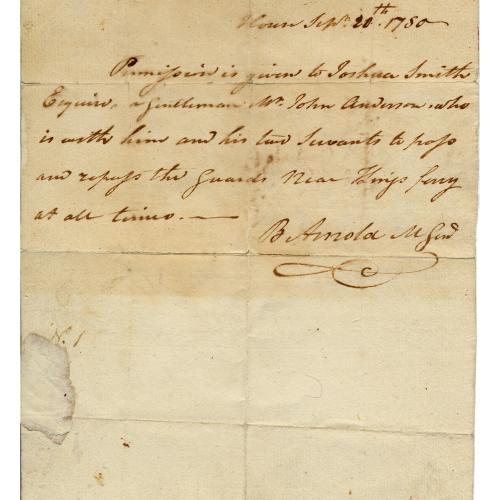 House Sepr. 20th. 1780
Permission is given to Joshua Smith
Esquire, a gentleman Mr. John Anderson who
is with him and his two Servants to pass
and repass the Guards Near Kings ferry
at all times. —
B Arnold M Genl
N. 1